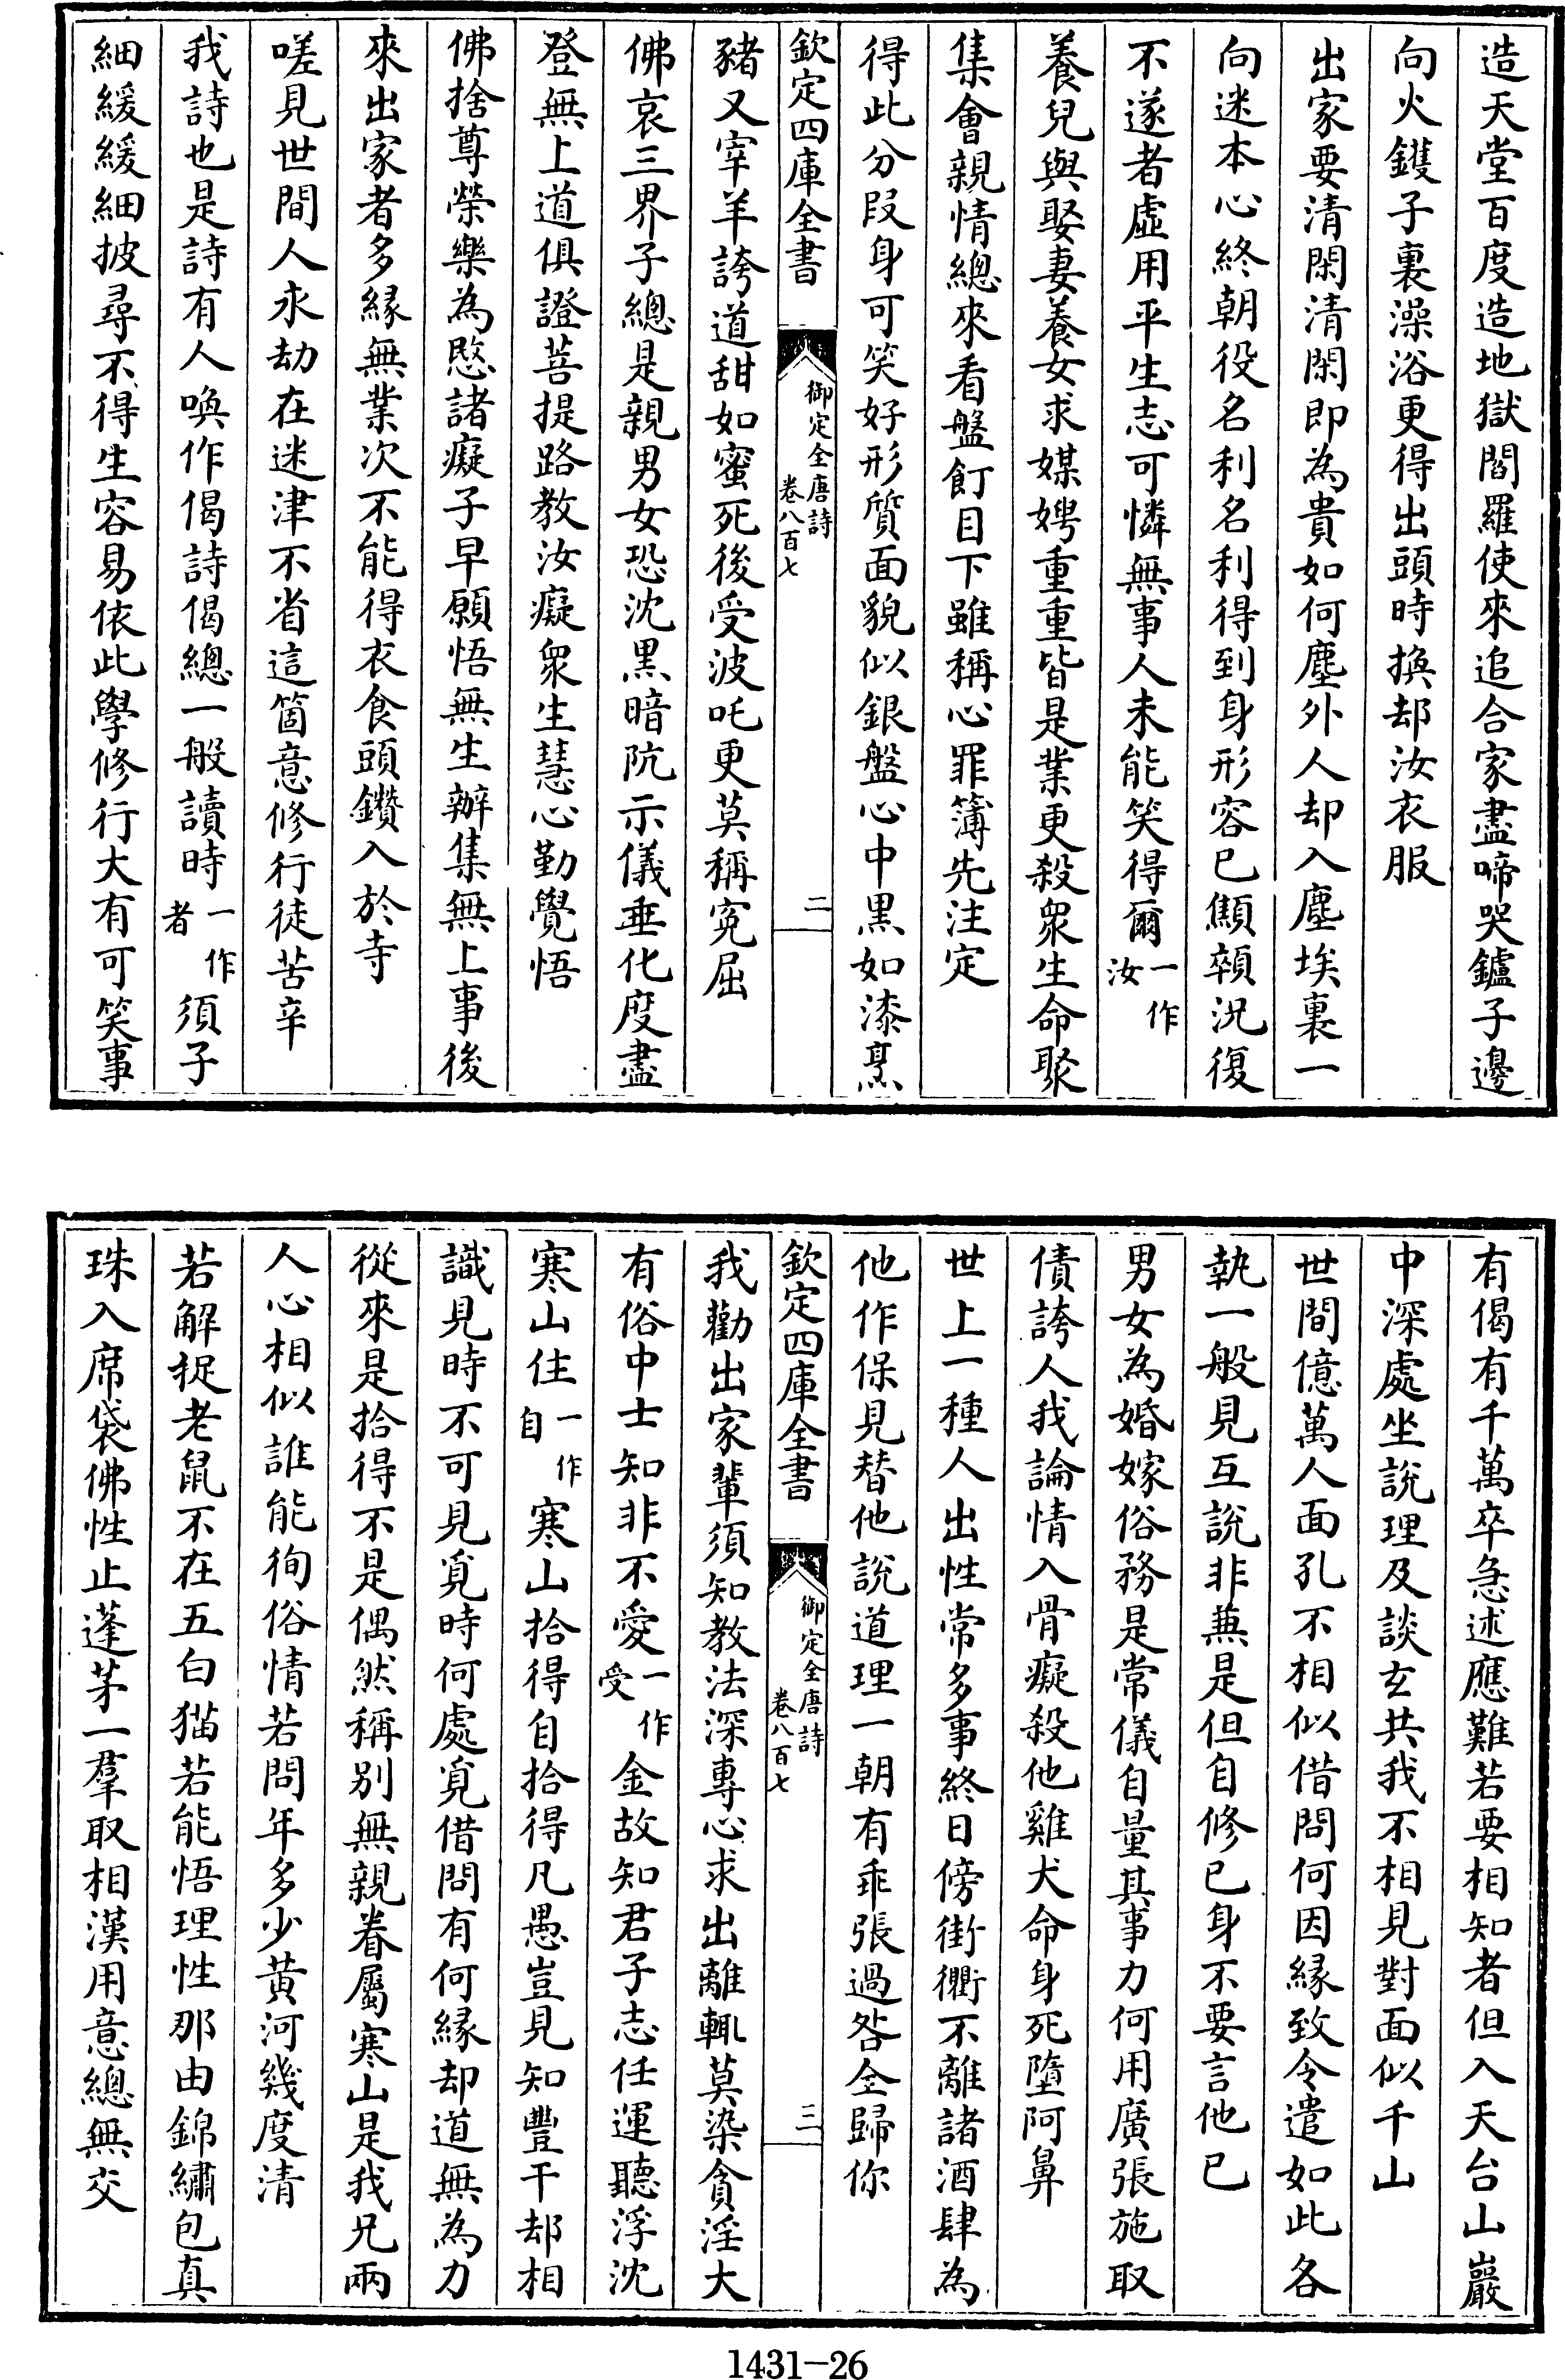 造天堂百度造地獄閻羅使來追合家盡啼哭鑪子邊
向火鑊子裏澡浴更得出頭時換却汝衣服
出家要清閑清閑即為貴如何塵外人却入塵埃裏一
向迷本心終朝役名利名利得到身形容已顦顇況復
不遂者虛用平生志可憐無事人未能笑得爾一作汝
養兒與娶妻養女求媒娉重重皆是業更殺衆生命聚
集會親情總來看盤飣目下雖稱心罪簿先注定
得此分段身可笑好形質面貌似銀盤心中黑如漆烹
欽定四庫全書
御定全唐詩
卷八百七
二
豬又宰羊誇道甜如蜜死後受波吒更莫稱寃屈
佛哀三界子總是親男女恐沈黑暗阬示儀垂化度盡
登無上道俱證菩提路教汝癡衆生慧心勤覺悟
佛捨尊榮樂為愍諸癡子早願悟無生辦集無上事後
來出家者多緣無業次不能得衣食頭鑽入於寺
嗟見世間人永劫在迷津不省這箇意修行徒苦辛
我詩也是詩有人喚作偈詩偈總一般讀時一作者須子
細緩緩細披尋不得生容易依此學修行大有可笑事
有偈有千萬卒急述應難若要相知者但入天台山巖
中深處坐說理及談玄共我不相見對面似千山
世間億萬人面孔不相似借問何因緣致令遣如此各
執一般見互說非兼是但自修已身不要言他已
男女為婚嫁俗務是常儀自量其事力何用廣張施取
債誇人我論情入骨癡殺他雞犬命身死墮阿鼻
世上一種人出性常多事終日傍街衢不離諸酒肆為
他作保見替他說道理一朝有乖張過咎全歸你
欽定四庫全書
御定全唐詩
卷八百七
三
我勸出家輩須知教法深專心求出離輒莫染貪淫大
有俗中士知非不愛一作受金故知君子志任運聽浮沈
寒山住一作自寒山拾得自拾得凡愚豈見知豐干却相
識見時不可見覓時何處覓借問有何緣却道無為力
從來是拾得不是偶然稱別無親眷屬寒山是我兄兩
人心相似誰能徇俗情若問年多少黃河幾度清
若解捉老鼠不在五白猫若能悟理性那由錦繡包真
珠入席袋佛性止蓬茅一羣取相漢用意總無交
1431-26